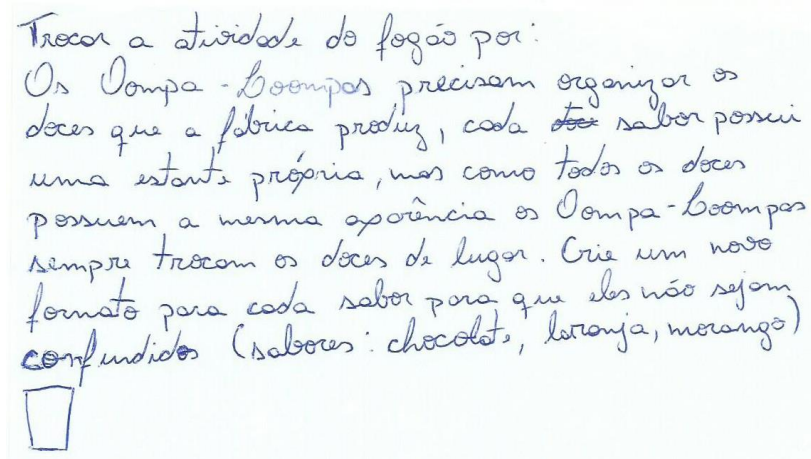 Trocar a atividade do fogão por:
Os Oompa-Loompas precisam organizar os
doces que a fábrica produz, cada sabor possui
uma estante própria, mas como todos os doces
possuem a mesma aparência os Oompa-Loompas
sempre trocam os doces de lugar. Crie um novo
formato para cada sabor para que eles não sejam
confundidos (sabores: chocolate, laranja, morango)